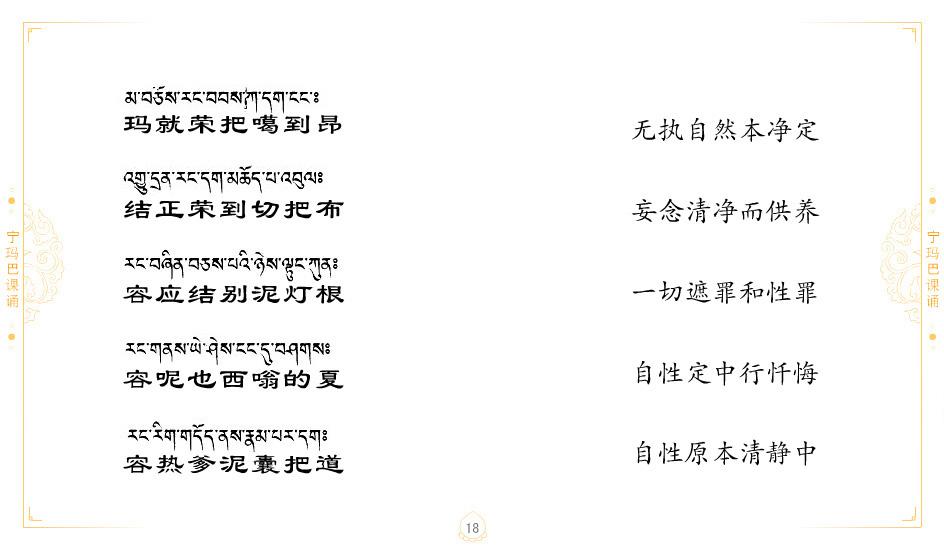 མ་བཅོས་རང་བབས་ཀ་དག་ངང་ཿ
玛就荣把噶到昂
འགྱུ་དྲན་རང་དག་མཆོད་པ་འབུལཿ
结正荣到切把布
རང་བཞིན་བཅས་པའི་ཉེས་ལྟུང་ཀུནཿ
容应结别泥灯根
རང་གནས་ཡེ་ཤེས་ངང་དུ་བཤགསཿ
容呢也西嗡的夏
རང་རིག་གདོད་ནས་རྣམ་པར་དགཿ
容热爹泥囊把道
无执自然本净定
妄念清净而供养
一切遮罪和性罪
自性定中行忏悔
自性原本清静中
宁玛巴课诵
宁玛巴课诵
18